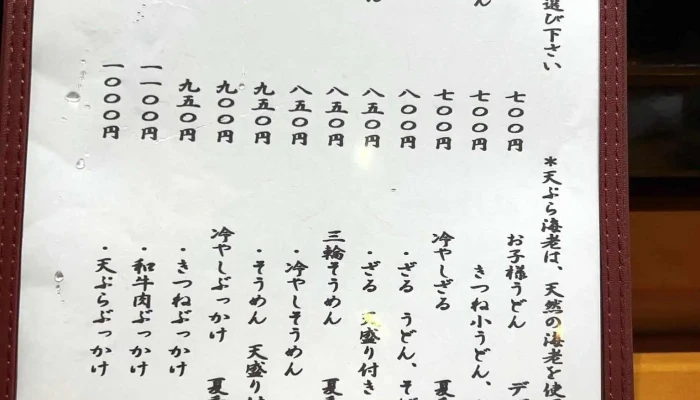 選び下さい
七〇〇円
七〇〇円
七〇〇円
八〇〇円
八五〇円
八五〇円
八五〇円
九五〇円
九〇〇円
九五〇円
一一〇〇円
一〇〇〇円
＊天ぷら海老は、天然の海老を使
お子様うどん デ
きつね小うどん、
冷やしざる 夏
・ざる うどん、そ
・ざる 天盛り付き
三輪そうめん 夏
・冷やしそうめん
・そうめん 天盛り
冷やしぶっかけ 夏
・きつねぶっかけ
・和牛肉ぶっかけ
・天ぷらぶっかけ